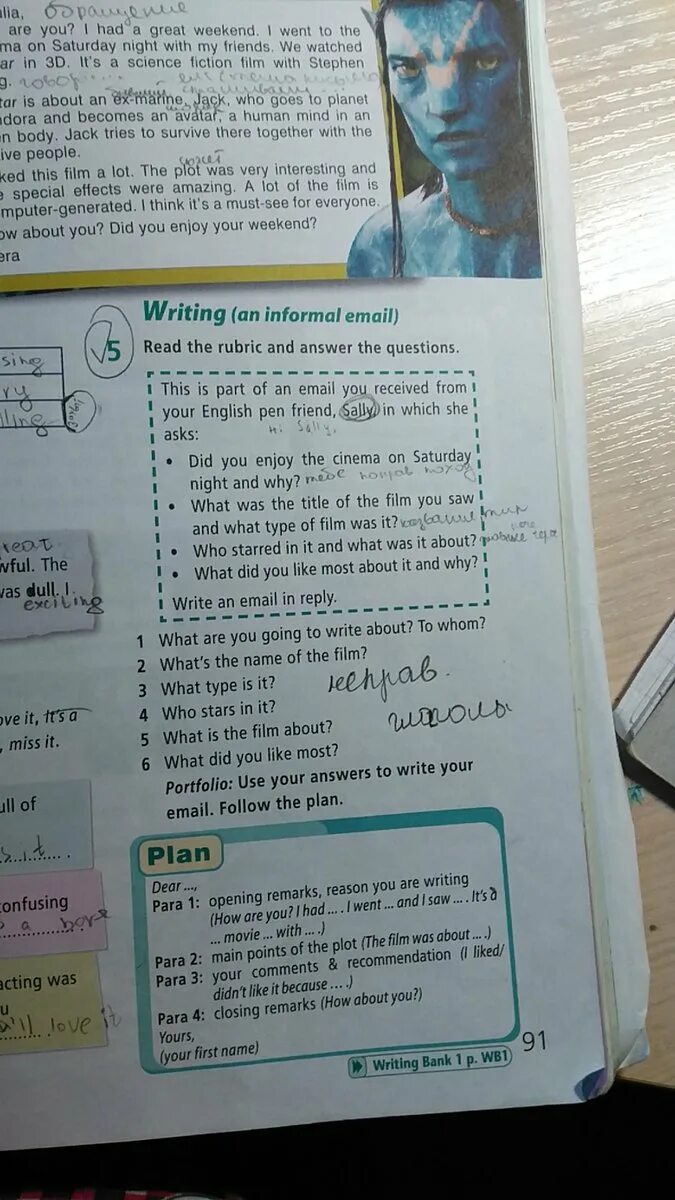 lia, обращение
are you? I had a great weekend. I went to the
ma on Saturday night with my friends. We watched
ar in 3D. It's a science fiction film with Stephen
g.
tar is about an ex-marine, Jack, who goes to planet
dora and becomes an avatar, a human mind in an
n body. Jack tries to survive there together with the
ive people.
сюжет
ked this film a lot. The plot was very interesting and
e special effects were amazing. A lot of the film is
mputer-generated. I think it's a must-see for everyone.
ow about you? Did you enjoy your weekend?
era
Writing (an informal email)
5 Read the rubric and answer the questions.
This is part of an email you received from
your English pen friend, Sally, in which she
asks: Hi Sally,
• Did you enjoy the cinema on Saturday
night and why? тебе понрав поход
• What was the title of the film you saw
and what type of film was it? название тип
• Who starred in it and what was it about?
• What did you like most about it and why?
Write an email in reply.
1 What are you going to write about? To whom?
2 What's the name of the film?
3 What type is it? неправ.
4 Who stars in it? глаголы
5 What is the film about?
6 What did you like most?
Portfolio: Use your answers to write your
email. Follow the plan.
Plan
Dear ...,
Para 1: opening remarks, reason you are writing
(How are you? I had ... . I went ... and I saw ... . It's a
... movie ... with ... .)
Para 2: main points of the plot (The film was about ... .)
Para 3: your comments & recommendation (I liked/
didn't like it because ... .)
Para 4: closing remarks (How about you?)
Yours,
(your first name)
Writing Bank 1 p. WB1
91
sing
ry
ling
reat
wful. The
was dull. I
exciting
ove it, It's a
, miss it.
ull of
s it
confusing
a bore
acting was
u
'll love it